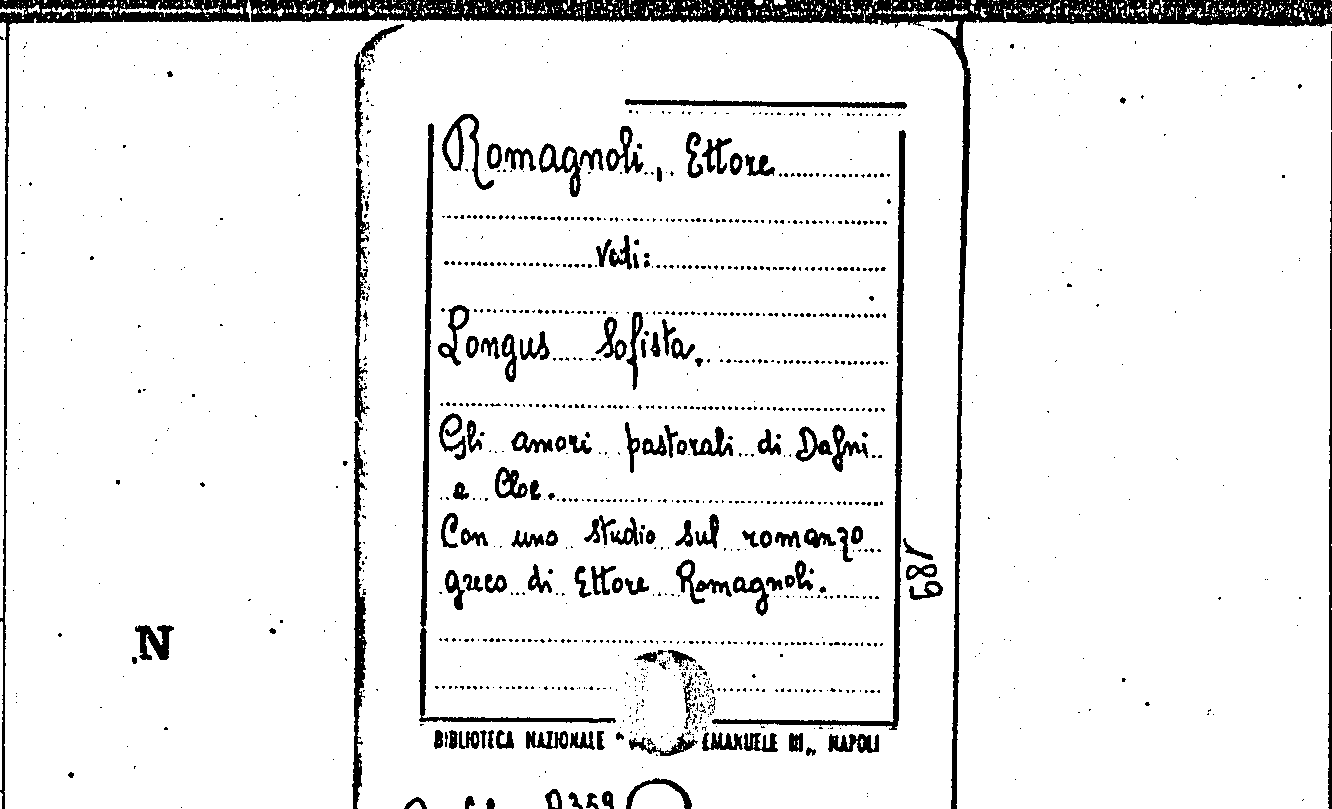 Romagnoli, Ettore
Vedi:
Longus Sofista.
Gli amori pastorali di Dafni
e Cloe.
Con uno studio sul romanzo
greco di Ettore Romagnoli.
681
N
BIBLIOTECA NAZIONALE " EMANUELE III„ NAPOLI
A359